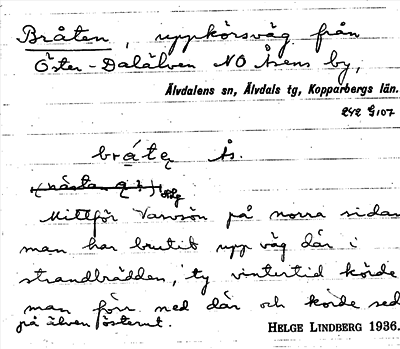 Bråten, uppkörsväg från
Öster-Dalälven NO Åsens by,
Älvdalens sn, Älvdals tg, Kopparbergs län.
242 G107
brátẹ Ås.
Mittför Vansön på norra sidan
man har brutit upp väg där i
strandbrädden, ty vintertid körde
man förr ned där och körde sed
på älven österut.
HELGE LINDBERG 1936.